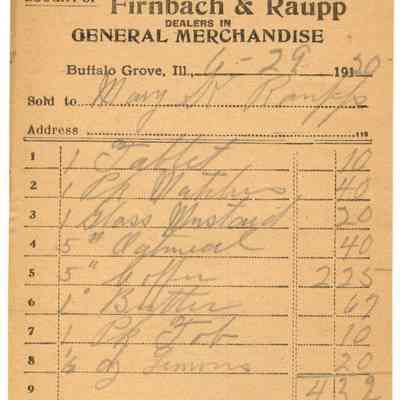 Firnbach & Raupp
DEALERS IN
GENERAL MERCHANDISE
Buffalo Grove, Ill., 6-29 1920
Sold to Mary Raupp
Address 119
1 1 Tablet 10
2 1 Pk Matches 40
3 1 Glass Mustard 20
4 5 " Oatmeal 40
5 5 " Coffee 2 25
6 1 " Butter 67
7 1 Pk Tob 10
8 ½ dz Lemons 20
9 4 32